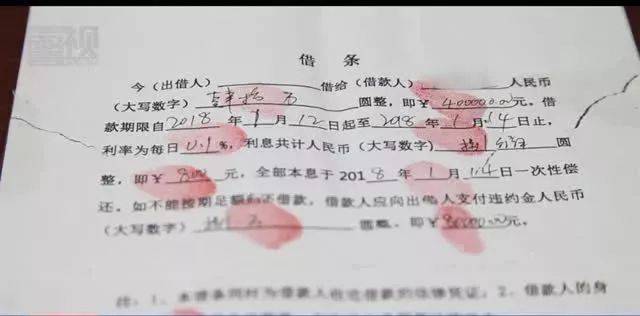 借条
今（出借人）借给（借款人）人民币
（大写数字） 万 圆整，即￥400000.00元。借
款期限自2018年1月12日起至2018年1月14日止，
利率为每日0.1%，利息共计人民币（大写数字） 圆
整，即￥800元，全部本息于2018年1月14日一次性偿
还。如不能按期足额 还借款，借款人应向出借人支付违约金人民币
（大写数字） 万 即￥ 元。
注：1、本借条同时为借款人收讫借款的法律凭证；2、借款人的身